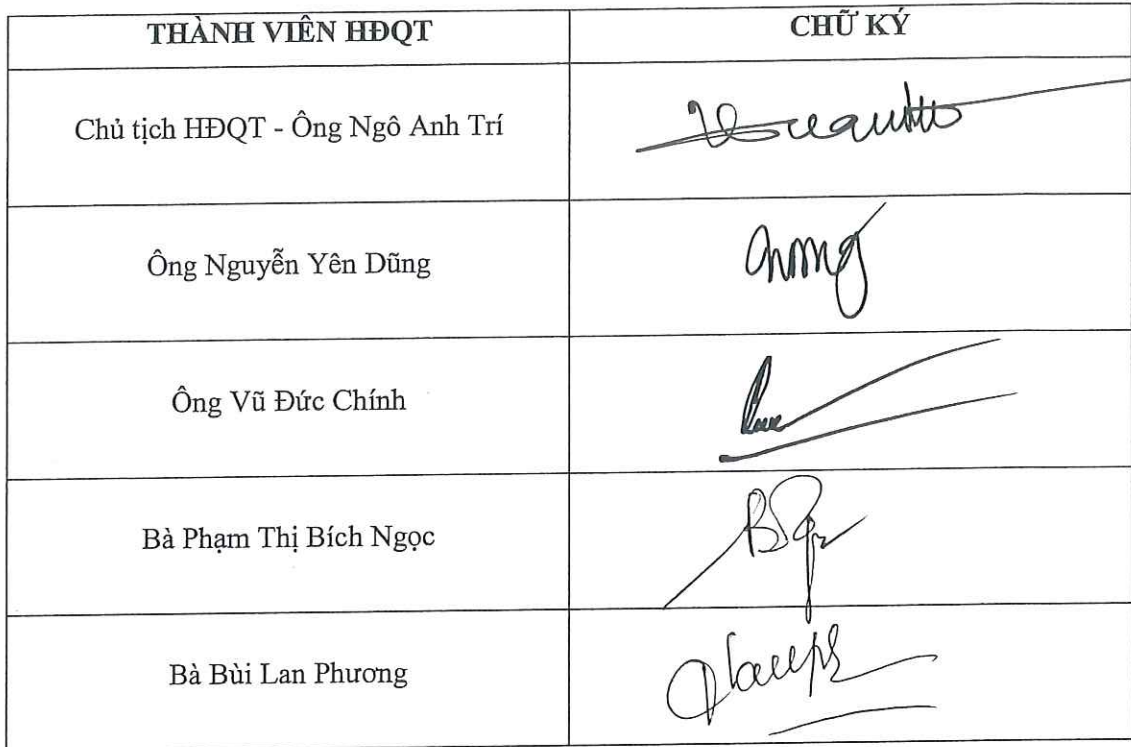 THÀNH VIÊN HĐQT
CHỮ KÝ
Chủ tịch HĐQT - Ông Ngô Anh Trí
Ông Nguyễn Yên Dũng
Ông Vũ Đức Chính
Bà Phạm Thị Bích Ngọc
Bà Bùi Lan Phương